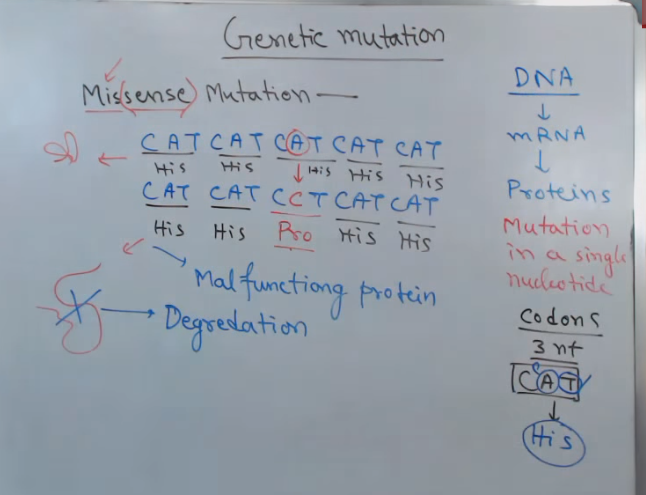 Genetic mutation
Missense) Mutation —
CAT CAT CAT CAT CAT
His His His His His
CAT CAT CCT CAT CAT
His His Pro His His
Malfunctiong protein
Degredation
DNA
mRNA
Proteins
Mutation
in a single
nucleotide
Codons
3 nt
CAT
His